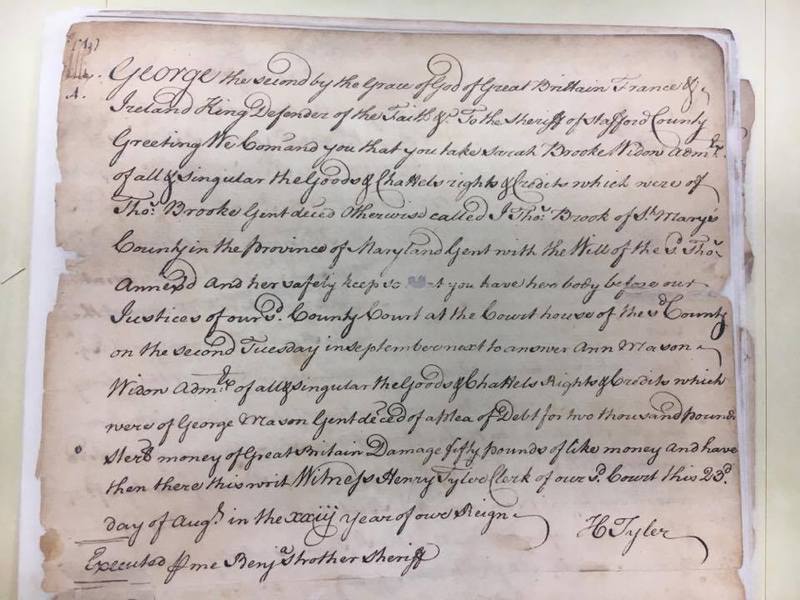 George the second by the Grace of God of Great Brittain France &
A. Ireland King Defender of the Faith &c. To the Sheriff of Stafford County
Greeting We Comand you that you take Sarah Brooke Widow Admrx.
of all & singular the Goods & Chattels rights & Credits which were of
Thos. Brooke Gent deced Otherwise called I Thos. Brook of St. Marys
County in the Province of Maryland Gent with the Will of the sd. Thos.
Annexd And her safely keep so you have her body before our
Justices of our sd. County Court at the Court house of the sd County
on the second Tuesday in September next to answer Ann Mason
Widow Admrx of all & singular the Goods & Chattels Rights & Credits which
were of George Mason Gent deced of a plea of Debt for two thousand pounds
Sterg money of Great Britain Damage fifty pounds of like money And have
then there this writ Witness Henry Tyler Clerk of our sd. Court this 23d.
day of Augst in the xxiij year of our Reign
H Tyler
Executed me Benja Strother Sheriff